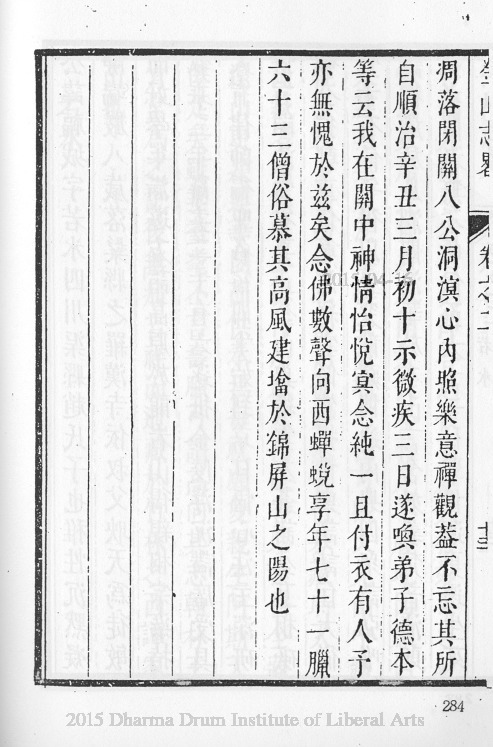 金山志畧 卷之二 十三
凋落閉關八公洞溟心内照樂意禪觀葢不忘其所
自順治辛丑三月初十示微疾三日遂喚弟子德本
等云我在關中神情怡悅寔念純一且付衣有人予
亦無愧於玆矣念佛數聲向西蟬蛻享年七十一臘
六十三僧俗慕其高風建㙮於錦屏山之陽也
284
2015 Dharma Drum Institute of Liberal Arts